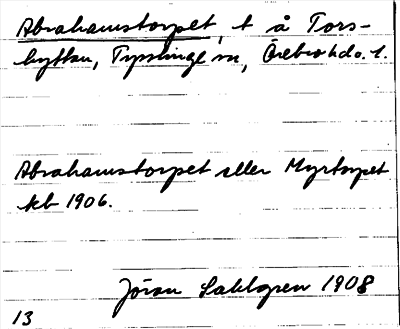 Abrahamstorpet, t å Tors-
hyttan, Tysslinge sn, Örebro hd o. l.
Abrahamstorpet eller Myrtorpet
kb 1906.
Jöran Sahlgren 1908
13